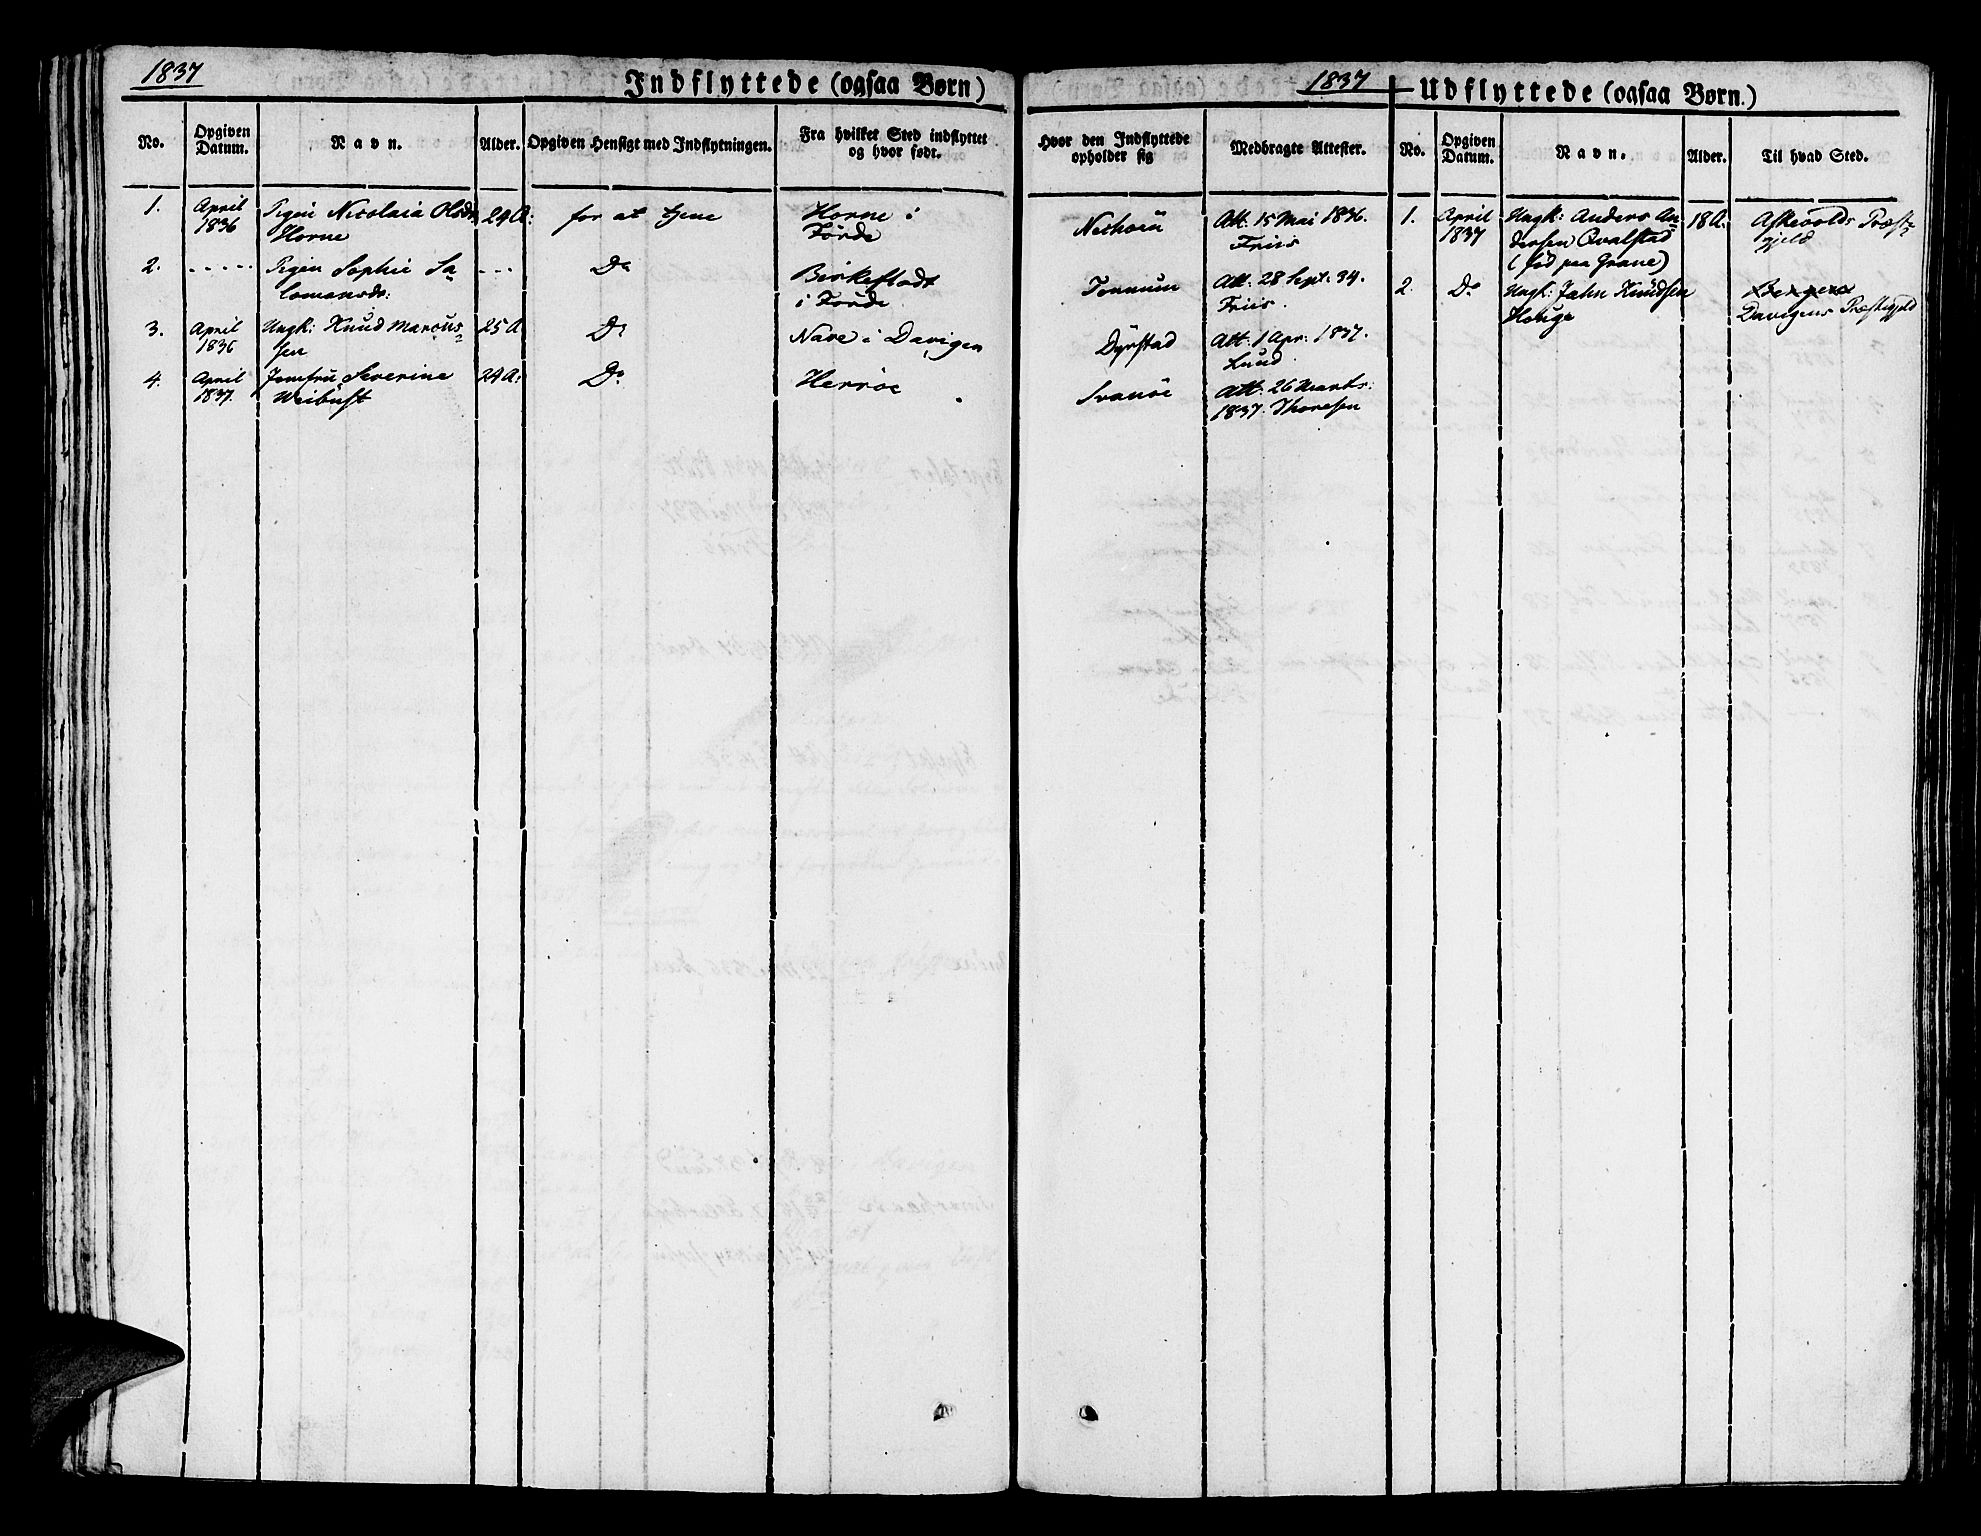 1837
Indflyttede (ogsaa Børn)
No.
Opgiven Datum.
Navn.
Alder.
Opgiven Hensigt med Indflytningen.
Fra hvilket Sted indflyttet og hvor født.
Hvor den Indflyttede opholder sig
Medbragte Attester.
1. April 1836 Pigen Nicolaia Olsdr Horne 24 A: for at tjene Horne i Förde Att. 15 Mai 1836. Friis
2. ----- Pigen Sophie Salomonsdr: --- Do Birkeflodt i Förde Tonnum Att. 28 Sept. 34. Friis.
3. April 1836 Ungk: Knud Marcussen 25 A. Do Nave i Davigen Dyrstad Att. 1 Apr: 1837. Lund
4. April 1837. Jomfru Severine Weibust 24 A: Do Herröe Svanöe Att. 26 Marts: 1837. Thoresen
1837
Udflyttede (ogsaa Børn.)
No.
Opgiven Datum.
Navn.
Alder.
Til hvad Sted.
1. April 1837 Ungk: Anders Andersen Qvalstad (fød paa Grane) 18 A. Askevolds Præstegjeld
2. Do Ungk: Jahn Knüdsen Houge Bergen Davigens Præstegjeld